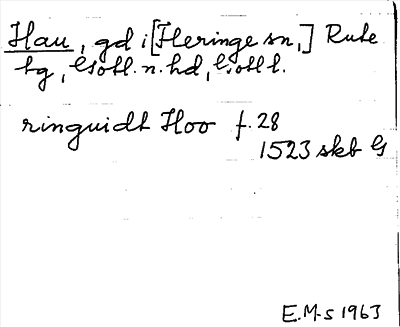 Hau, gd i [Heringe sn,] Rute
tg, Gotl. n. hd, Gotl l.
ringuidt Hoo f. 28
1523 skb G
E.M-s 1963